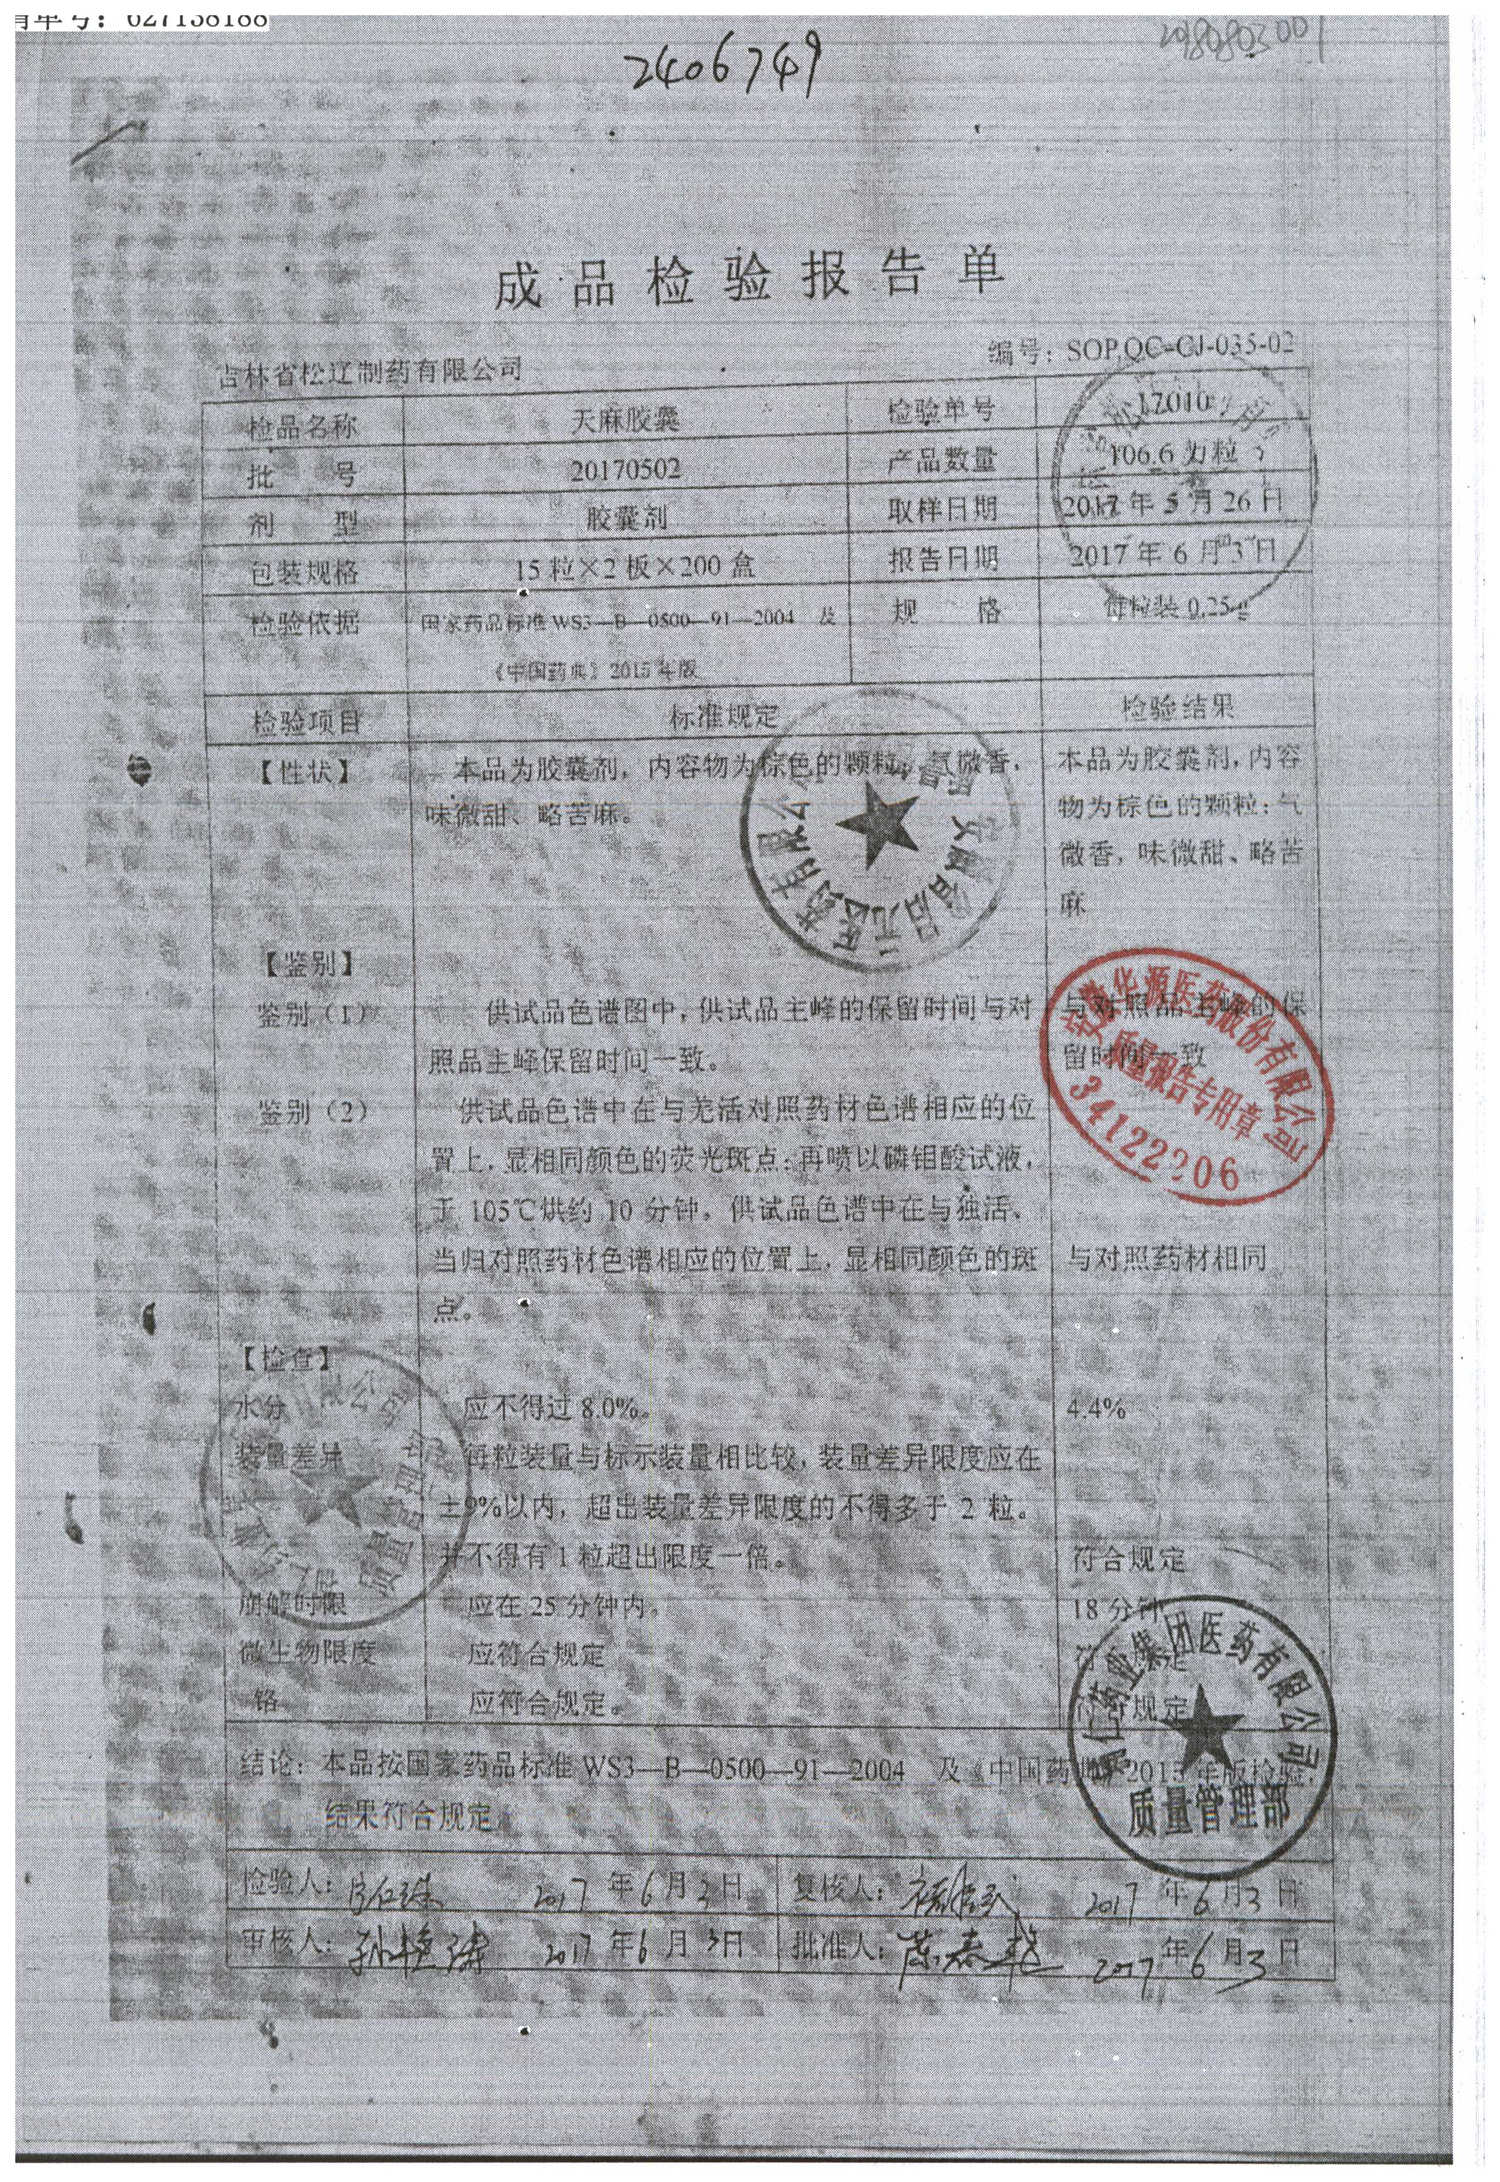 2406749
20180803001
成品检验报告单
吉林省松辽制药有限公司
编号：SOP.QC-CJ-035-02
检品名称 天麻胶囊 检验单号 17010
批 号 20170502 产品数量 106.6 万粒
剂 型 胶囊剂 取样日期 2017 年 5 月 26 日
包装规格 15 粒×2 板×200 盒 报告日期 2017 年 6 月 3 日
检验依据 国家药品标准 WS3—B—0500—91—2004 及 规 格 每粒装 0.25g
《中国药典》2015 年版
检验项目 标准规定 检验结果
【性状】 本品为胶囊剂，内容物为棕色的颗粒；气微香， 本品为胶囊剂，内容
味微甜、略苦麻。 物为棕色的颗粒；气
微香，味微甜、略苦
麻
【鉴别】
鉴别（1） 供试品色谱图中，供试品主峰的保留时间与对 与对照品主峰的保
照品主峰保留时间一致。 留时间一致
鉴别（2） 供试品色谱中在与羌活对照药材色谱相应的位
置上，显相同颜色的荧光斑点；再喷以磷钼酸试液，
于 105℃烘约 10 分钟。供试品色谱中在与独活、
当归对照药材色谱相应的位置上，显相同颜色的斑 与对照药材相同
点。
【检查】
水分 应不得过 8.0%。 4.4%
装量差异 每粒装量与标示装量相比较，装量差异限度应在
±9%以内，超出装量差异限度的不得多于 2 粒。
并不得有 1 粒超出限度一倍。 符合规定
崩解时限 应在 25 分钟内。 18 分钟
微生物限度 应符合规定 符合规定
铬 应符合规定。 符合规定
结论：本品按国家药品标准 WS3—B—0500—91—2004 及《中国药典》2015 年版检验，
结果符合规定
检验人： 2017 年 6 月 3 日 复核人： 2017 年 6 月 3 日
审核人：孙艳涛 2017 年 6 月 3 日 批准人： 2017 年 6 月 3 日
安徽华源医药股份有限公司
质量报告专用章
34122206
仁药业集团医药有限公司
质量管理部
质量管理部